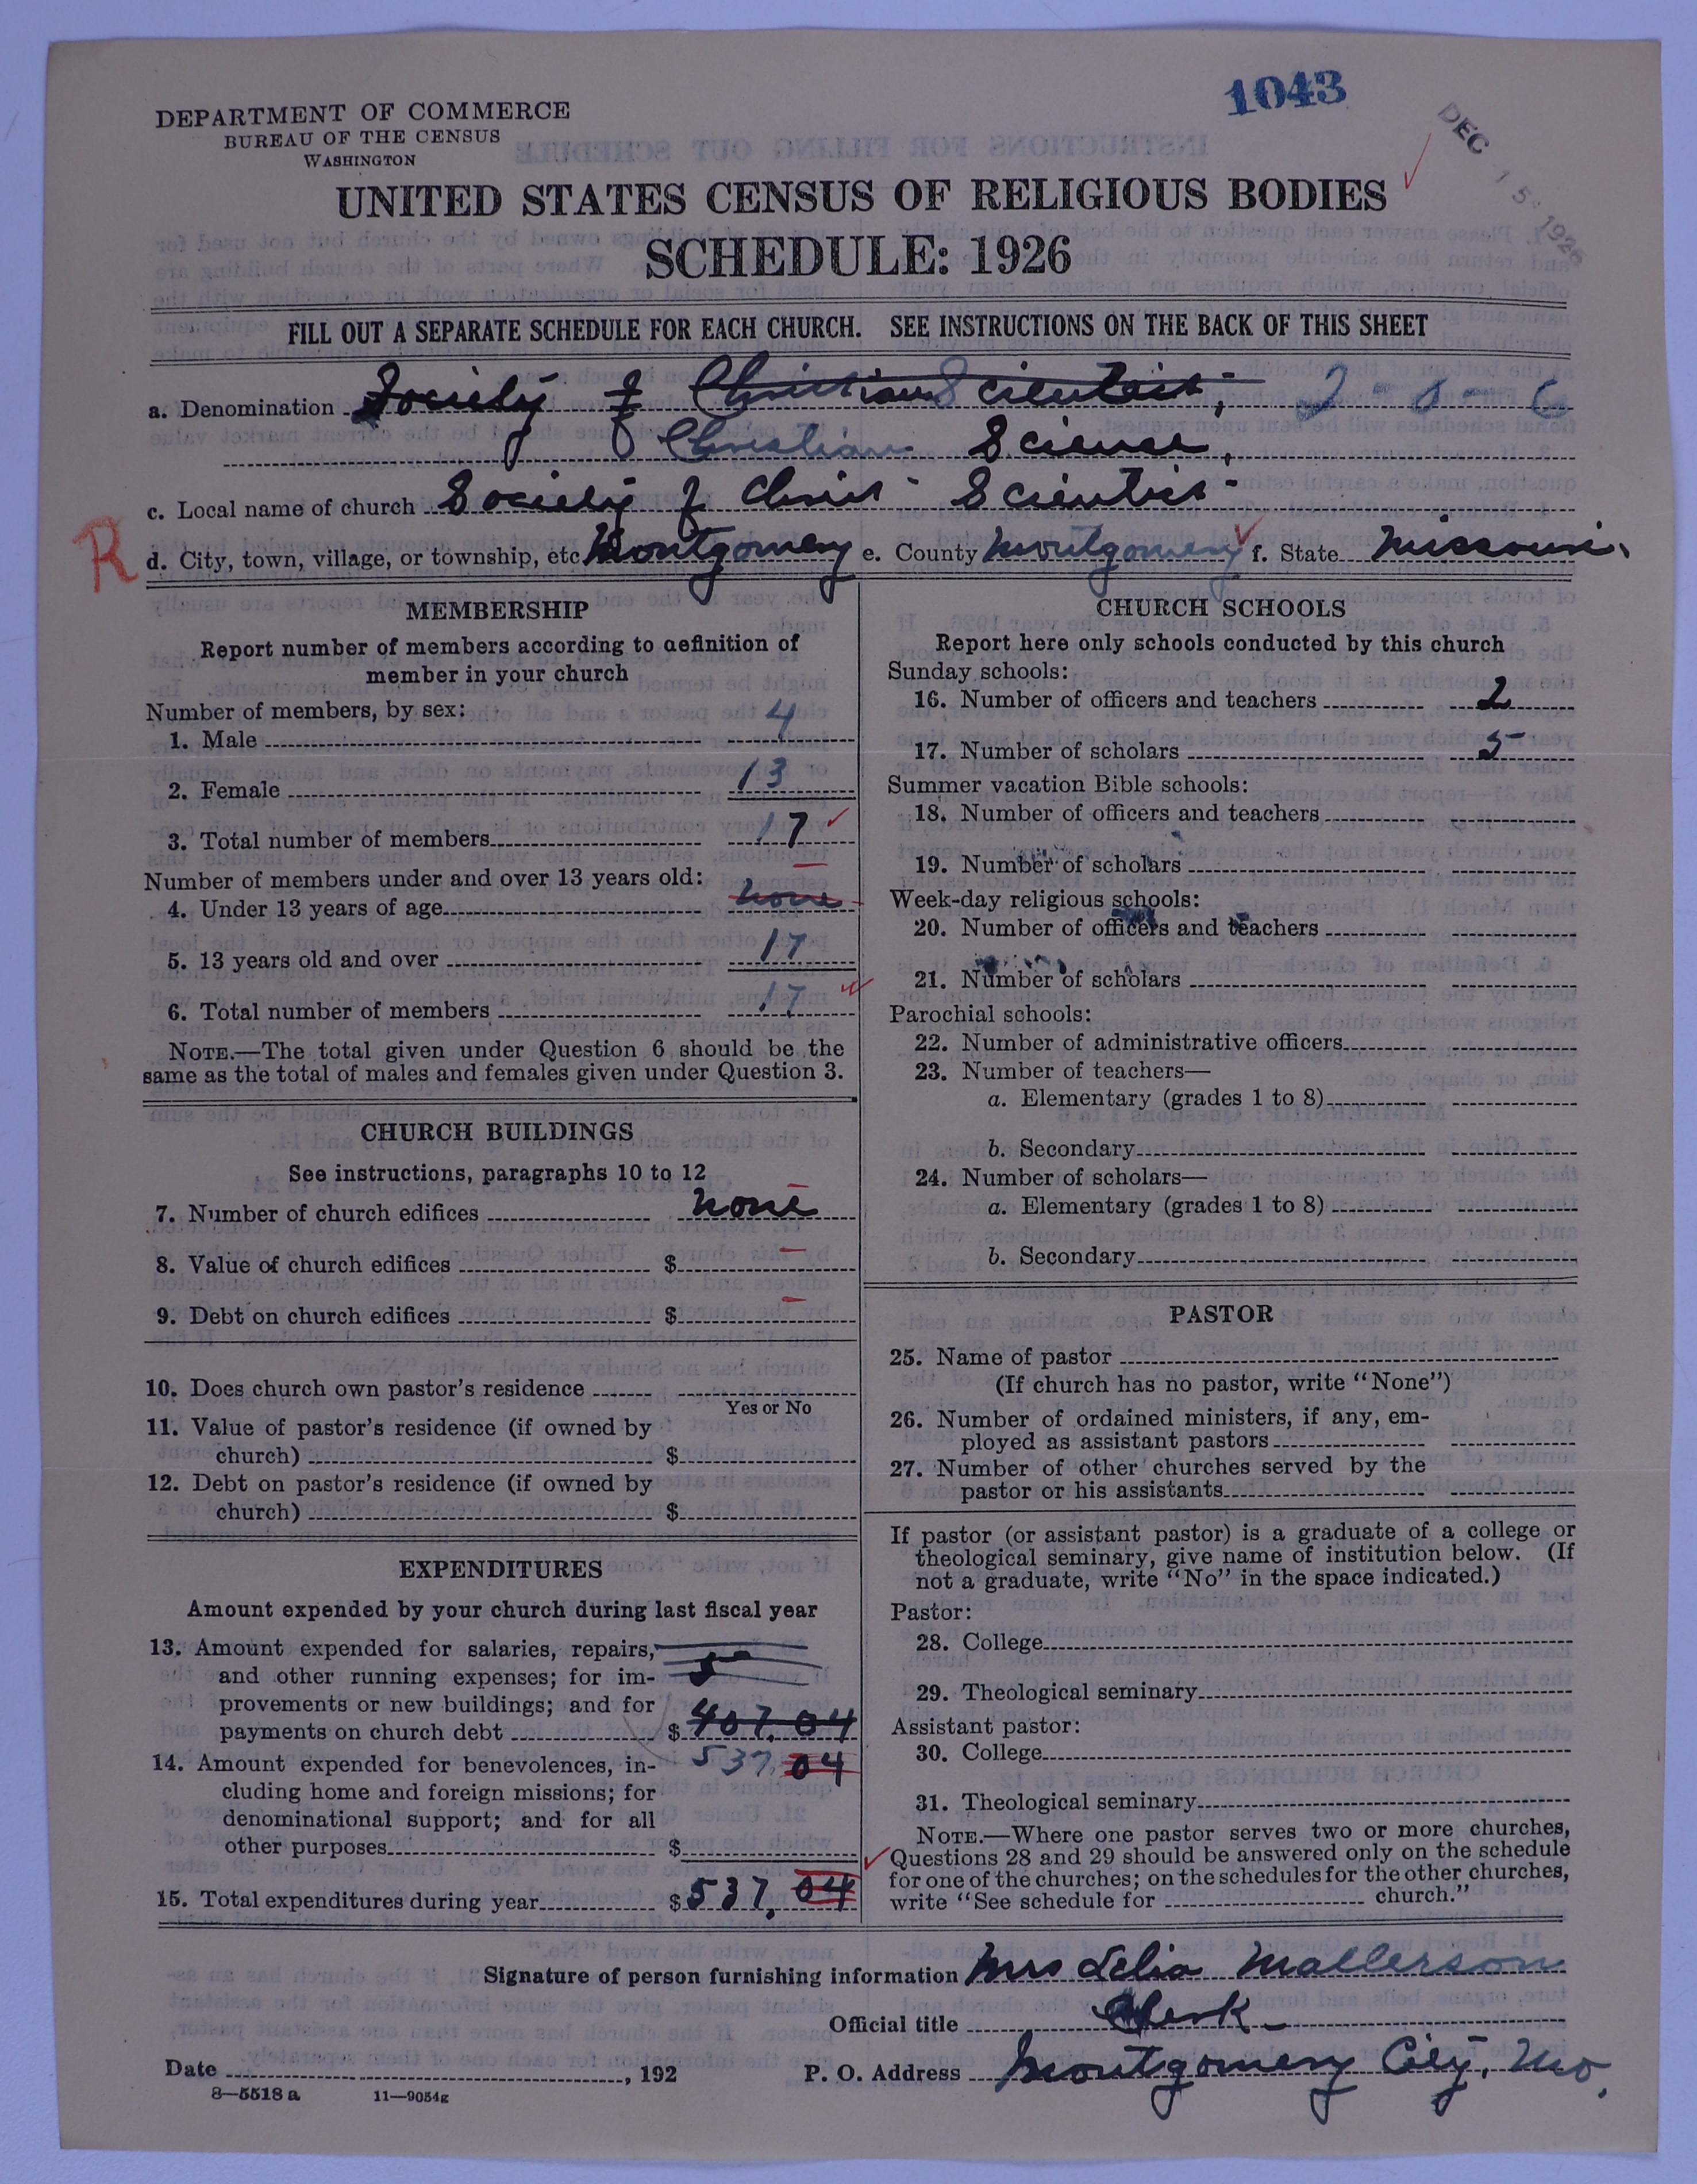 1043
DEC 15 1926
DEPARTMENT OF COMMERCE
BUREAU OF THE CENSUS
WASHINGTON
UNITED STATES CENSUS OF RELIGIOUS BODIES
SCHEDULE: 1926
FILL OUT A SEPARATE SCHEDULE FOR EACH CHURCH. SEE INSTRUCTIONS ON THE BACK OF THIS SHEET
a. Denomination Society of Christian Scientist, 2-0-6
Christian Science,
c. Local name of church Society of Christ Scientist
R
d. City, town, village, or township, etc. Montgomery e. County Montgomery f. State Missouri
MEMBERSHIP
Report number of members according to definition of
member in your church
Number of members, by sex:
1. Male 4
2. Female 13
3. Total number of members 17
Number of members under and over 13 years old:
4. Under 13 years of age none
5. 13 years old and over 17
6. Total number of members 17
NOTE.—The total given under Question 6 should be the
same as the total of males and females given under Question 3.
CHURCH BUILDINGS
See instructions, paragraphs 10 to 12
7. Number of church edifices none
8. Value of church edifices $ —
9. Debt on church edifices $ —
10. Does church own pastor's residence
Yes or No
11. Value of pastor's residence (if owned by
church) $
12. Debt on pastor's residence (if owned by
church) $
EXPENDITURES
Amount expended by your church during last fiscal year
13. Amount expended for salaries, repairs,
and other running expenses; for im- 5
provements or new buildings; and for
payments on church debt $ 407.04
14. Amount expended for benevolences, in- 537.04
cluding home and foreign missions; for
denominational support; and for all
other purposes $
15. Total expenditures during year $ 537.04
CHURCH SCHOOLS
Report here only schools conducted by this church
Sunday schools:
16. Number of officers and teachers 2
17. Number of scholars 5
Summer vacation Bible schools:
18. Number of officers and teachers
19. Number of scholars
Week-day religious schools:
20. Number of officers and teachers
21. Number of scholars
Parochial schools:
22. Number of administrative officers
23. Number of teachers—
a. Elementary (grades 1 to 8)
b. Secondary
24. Number of scholars—
a. Elementary (grades 1 to 8)
b. Secondary
PASTOR
25. Name of pastor
(If church has no pastor, write "None")
26. Number of ordained ministers, if any, em-
ployed as assistant pastors
27. Number of other churches served by the
pastor or his assistants
If pastor (or assistant pastor) is a graduate of a college or
theological seminary, give name of institution below. (If
not a graduate, write "No" in the space indicated.)
Pastor:
28. College
29. Theological seminary
Assistant pastor:
30. College
31. Theological seminary
NOTE.—Where one pastor serves two or more churches,
Questions 28 and 29 should be answered only on the schedule
for one of the churches; on the schedules for the other churches,
write "See schedule for church."
Signature of person furnishing information Mrs Lelia Mallerson
Official title Clerk
Date , 192 P. O. Address Montgomery City, Mo.
8—5518 a 11—9054g